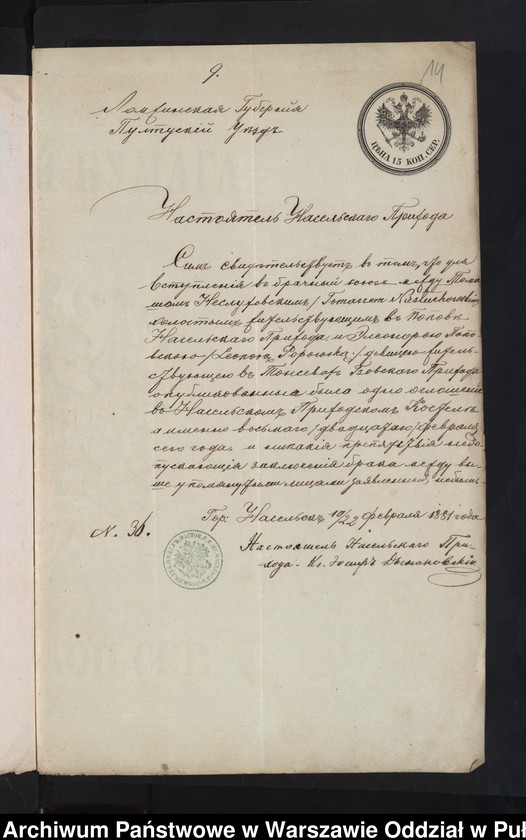 9.
14
Ломжинская Губернія
Пултускій Уѣздъ
ЦѢНА 15 КОП. СЕР.
Настоятель Насельскаго Прихода
Симъ свидѣтельствуетъ въ томъ, что для
вступленія въ брачный союзъ между Тома-
шомъ
холостымъ жительствующимъ въ Поповѣ
Насельскаго Прихода, и Элеонорою Попов-
скою / / дѣвицею житель-
ствующею въ Прихода
опубликованные была одно оглашеніе
въ Насельскомъ Приходскомъ Костелѣ
а именно восьмаго / двадцатаго / февраля
сего года, и никакія препятствія недо-
пускающія заключенія брака между вы-
ше упомянутыми лицами заявленной небыло.
Гор: Насельскъ 10/22 февраля 1881 года
N. 36.
Настоятель Насельскаго При-
хода Кс.
Archiwum Państwowe w Warszawie Oddział w Puł